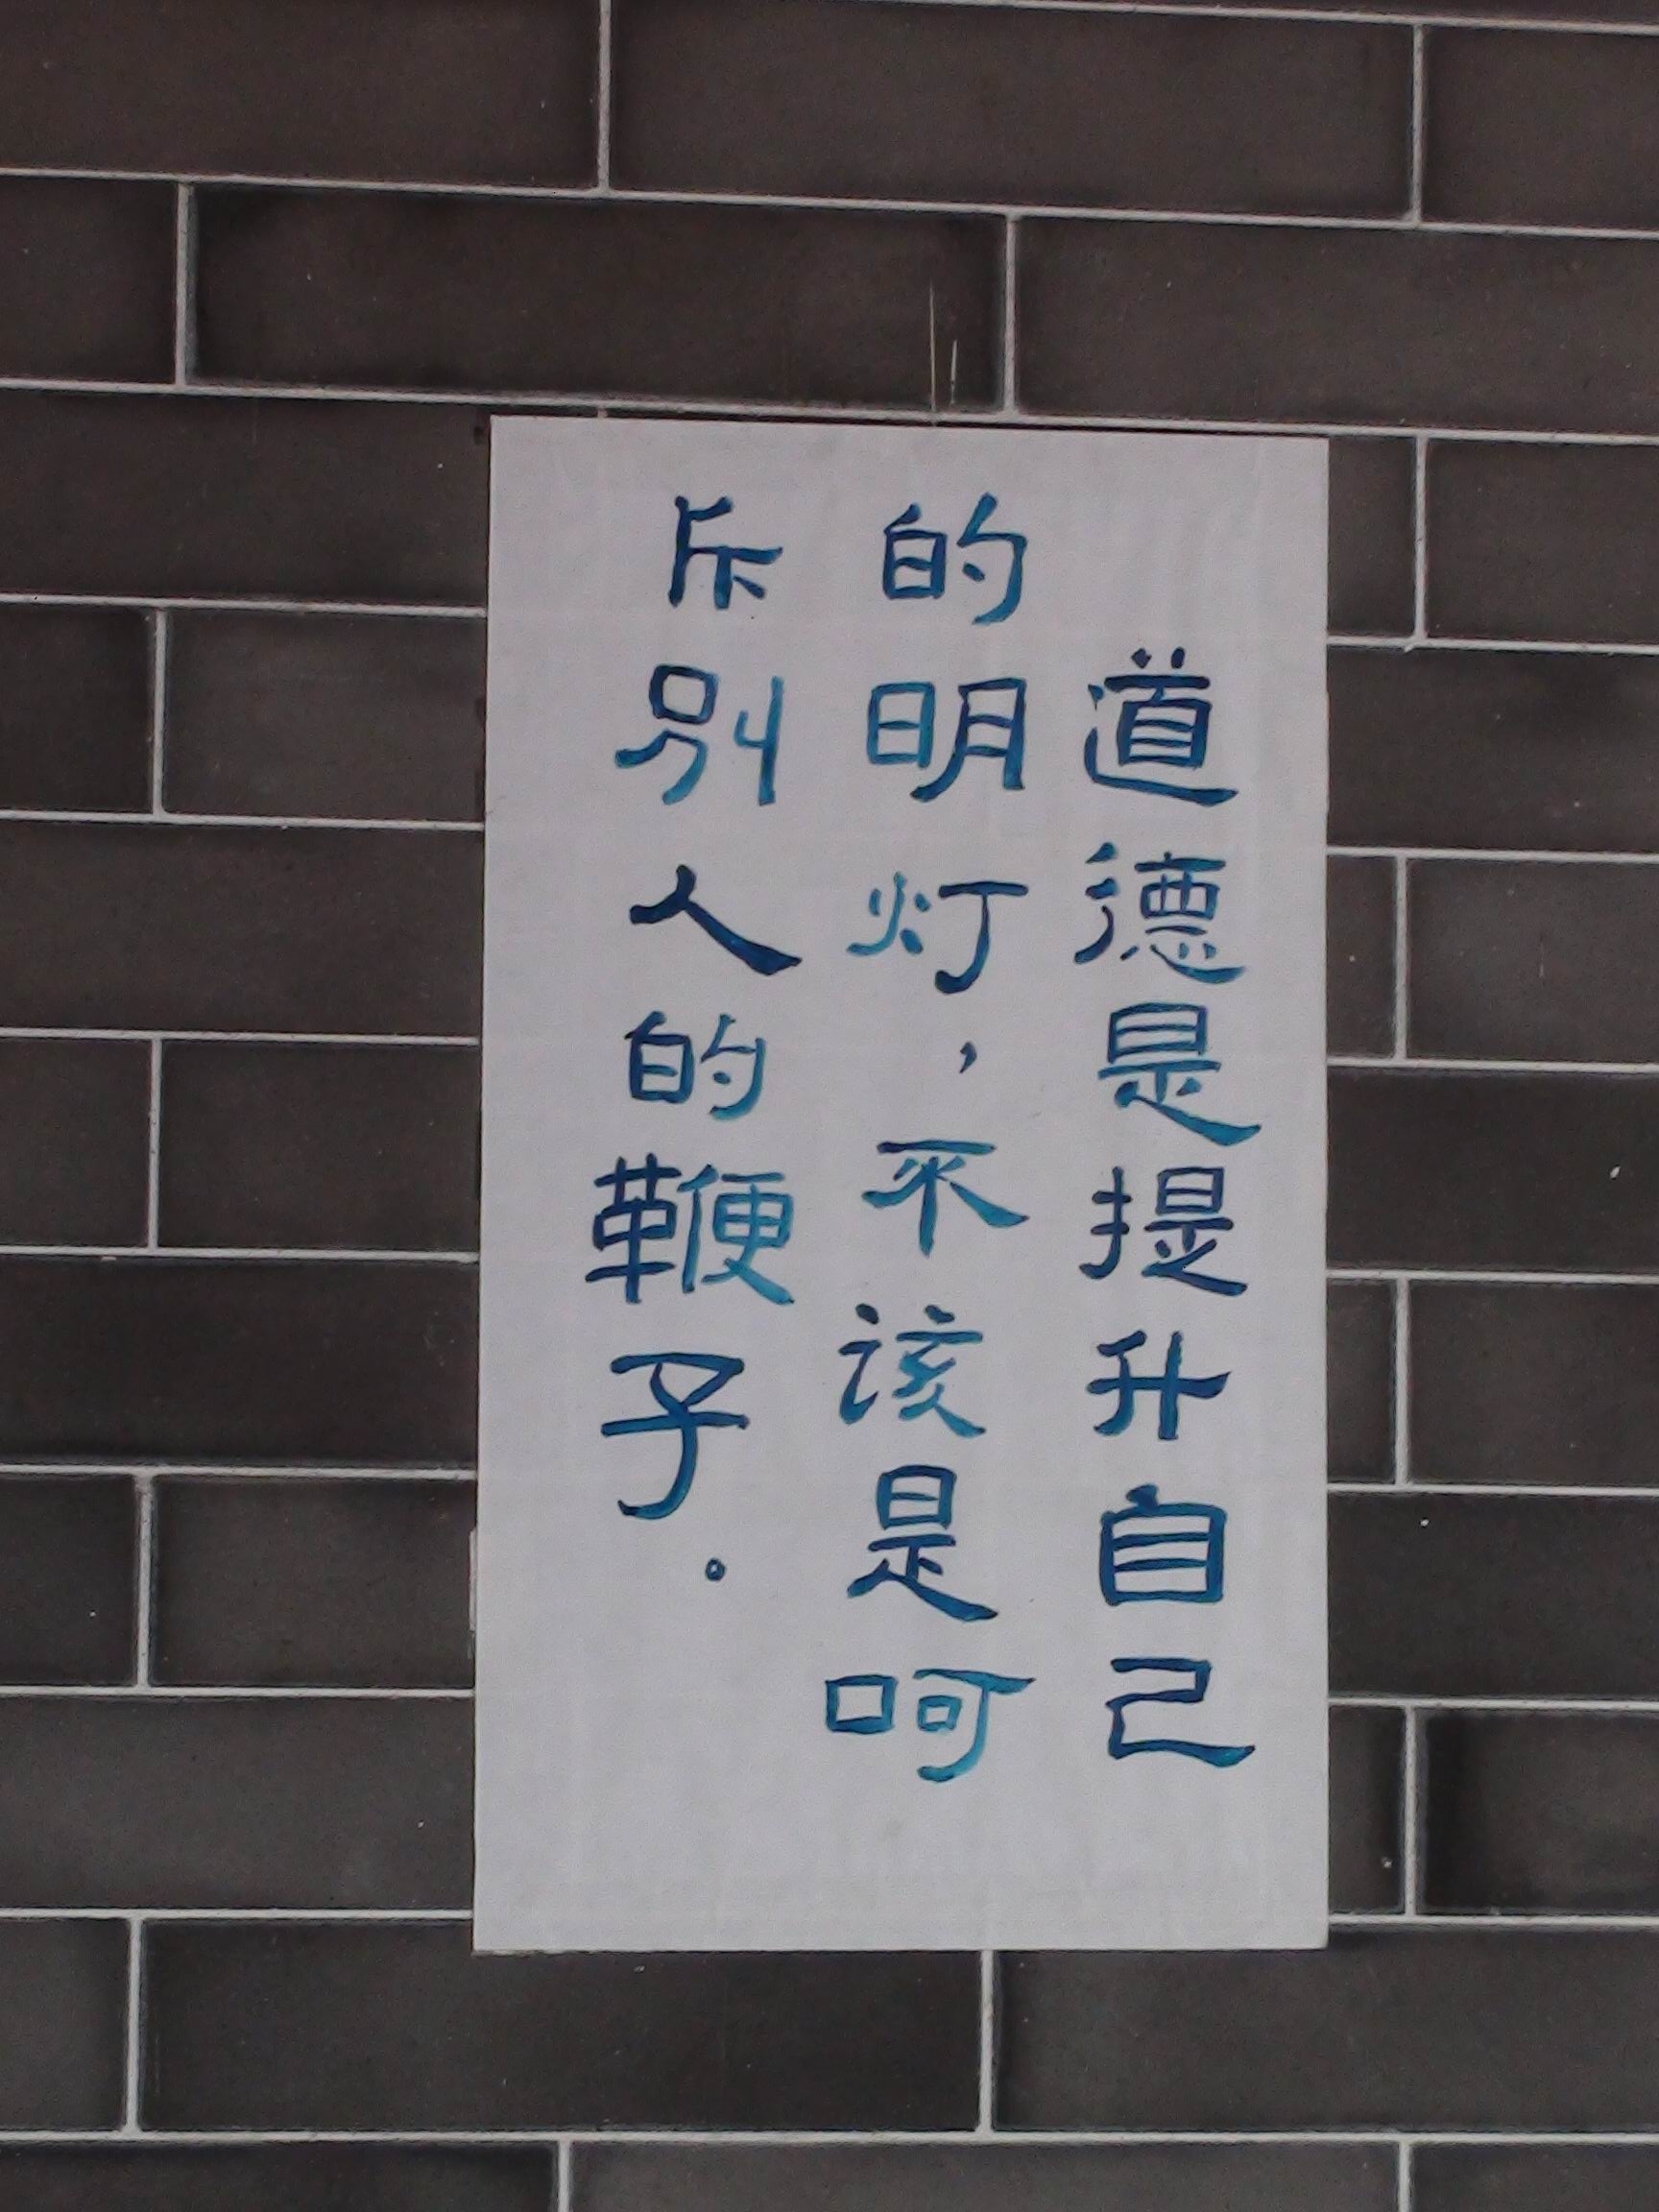 道德是提升自己
的明灯，不该是呵
斥别人的鞭子。